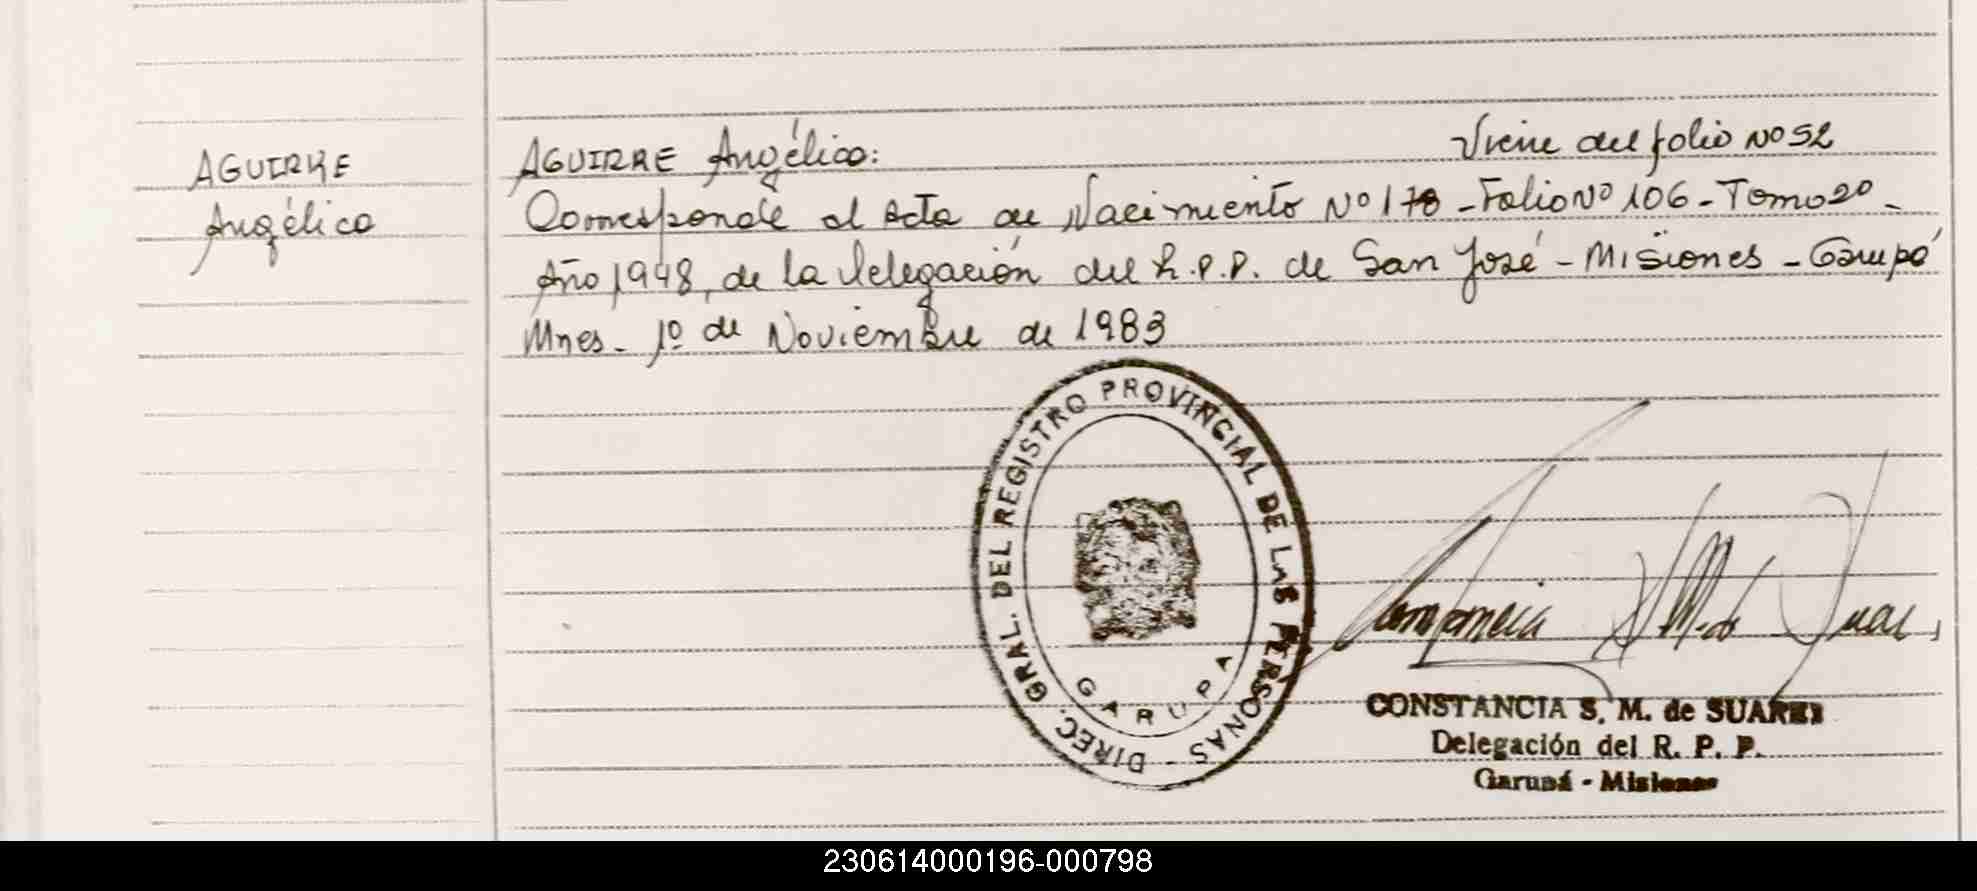 AGUIRRE
Angélico
AGUIRRE Angélico: Viene del folio Nº 52
Corresponde al Acta de Nacimiento Nº 178 - Folio Nº 106 - Tomo 2º -
Año 1948, de la Delegación del R.P.P. de San José - Misiones - Garupá
Mnes. 1º de Noviembre de 1983
DIREC. GRAL. DEL REGISTRO PROVINCIAL DE LAS PERSONAS
GARUPA
Constancia S. M. de Suarez
CONSTANCIA S. M. de SUAREZ
Delegación del R. P. P.
Garupá - Misiones
230614000196-000798